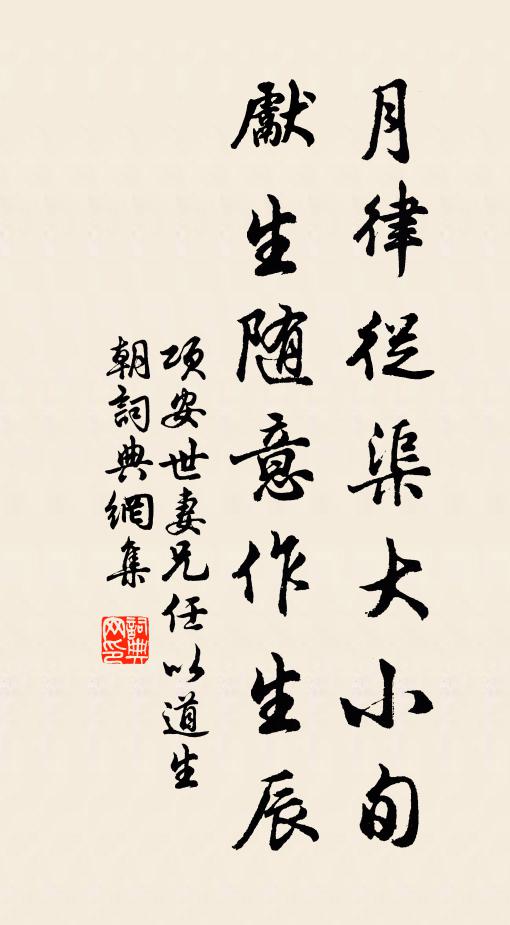 月律從渠大小旬
獻生随意作生辰
項安世妻兄任以道生
朝詞典網集
詞典网印